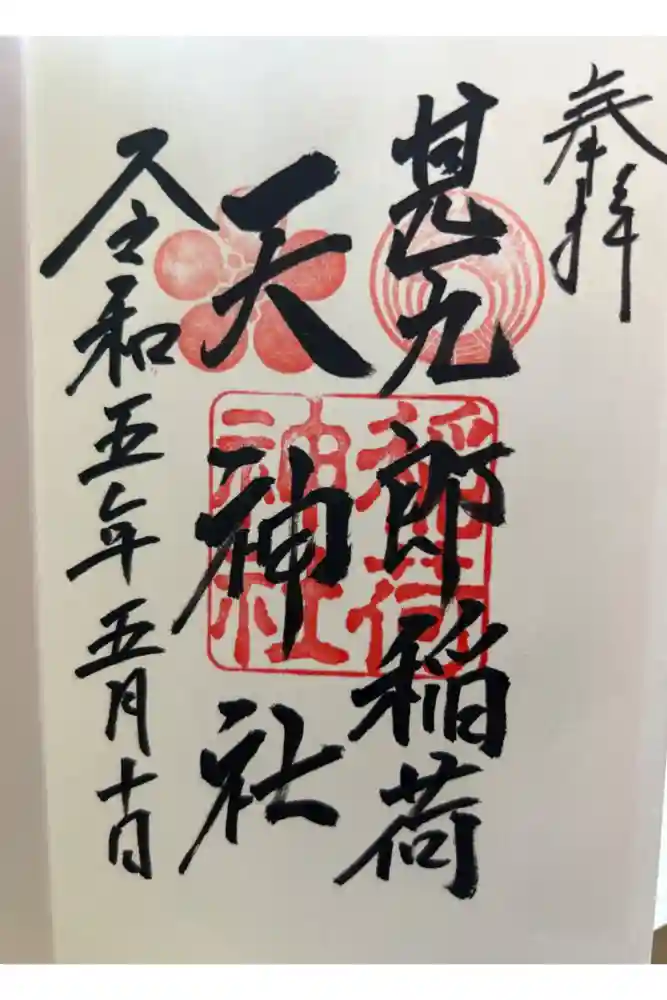 奉拝
甚九郎稲荷
天神社
稲荷
神社
令和五年五月十日